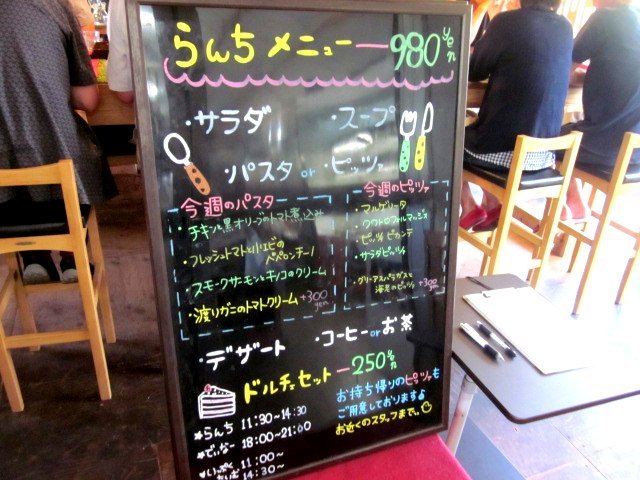 らんちメニュー 980yen
・サラダ ・スープ
・パスタ or ・ピッツァ
今週のパスタ
・チキンと黒オリーブのトマト煮込み
・フレッシュトマトと小エビの
ペペロンチーノ
・スモークサーモンとキノコのクリーム
・渡りガニのトマトクリーム +300yen
今週のピッツァ
・マルゲリータ
・クワトロフォルマッジ
・ピッツァピカンテ
・サラダピッツァ
・グリーンアスパラガスと
海老のピッツァ +300yen
・デザート ・コーヒー or お茶
ドルチェセット 250yen
★らんち 11:30~14:30
★でぃなー 18:00~21:00
★いっぷく 11:00~
たいむ 14:30~
お持ち帰りのピッツァも
ご用意しております♪
お近くのスタッフまで。